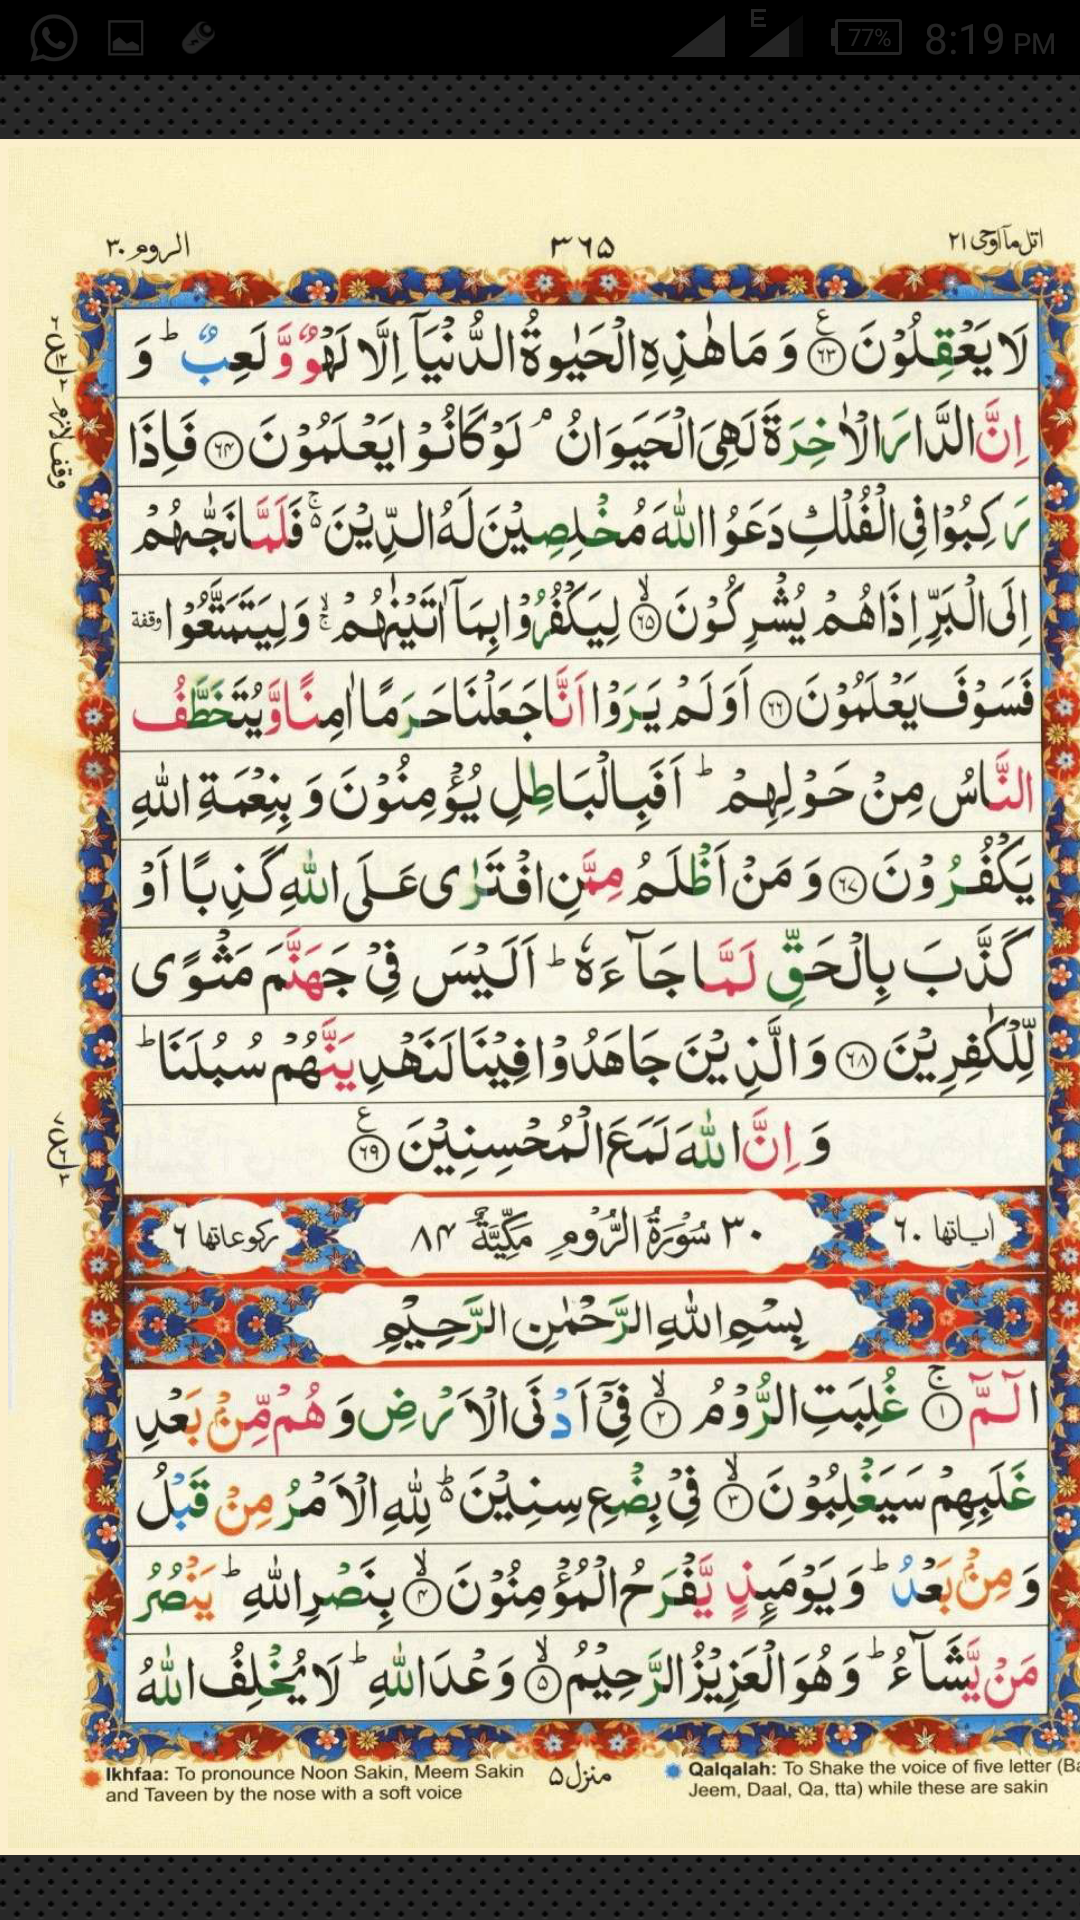 8:19 PM
77%
E
اتل مآاوحی ٢١
٣٦٥
الروم ٣٠
لَا يَعْقِلُوْنَ ﴿٦٣﴾ وَ مَا هٰذِهِ الْحَيٰوةُ الدُّنْيَآ اِلَّا لَهْوٌ وَّ لَعِبٌ ؕ وَ
اِنَّ الدَّارَ الْاٰخِرَةَ لَهِيَ الْحَيَوَانُ ۘ لَوْ كَانُوْا يَعْلَمُوْنَ ﴿٦٤﴾ فَاِذَا
رَكِبُوْا فِي الْفُلْكِ دَعَوُا اللّٰهَ مُخْلِصِيْنَ لَهُ الدِّيْنَ ۚ۬ فَلَمَّا نَجّٰىهُمْ
اِلَى الْبَرِّ اِذَا هُمْ يُشْرِكُوْنَ ﴿٦٥﴾ۙ لِيَكْفُرُوْا بِمَآ اٰتَيْنٰهُمْ ۚۙ وَلِيَتَمَتَّعُوْا وقفة
فَسَوْفَ يَعْلَمُوْنَ ﴿٦٦﴾ اَوَلَمْ يَرَوْا اَنَّا جَعَلْنَا حَرَمًا اٰمِنًا وَّيُتَخَطَّفُ
النَّاسُ مِنْ حَوْلِهِمْ ؕ اَفَبِالْبَاطِلِ يُؤْمِنُوْنَ وَ بِنِعْمَةِ اللّٰهِ
يَكْفُرُوْنَ ﴿٦٧﴾ وَ مَنْ اَظْلَمُ مِمَّنِ افْتَرٰى عَلَى اللّٰهِ كَذِبًا اَوْ
كَذَّبَ بِالْحَقِّ لَمَّا جَآءَهٗ ؕ اَلَيْسَ فِيْ جَهَنَّمَ مَثْوًى
لِّلْكٰفِرِيْنَ ﴿٦٨﴾ وَ الَّذِيْنَ جَاهَدُوْا فِيْنَا لَنَهْدِيَنَّهُمْ سُبُلَنَا ؕ
وَ اِنَّ اللّٰهَ لَمَعَ الْمُحْسِنِيْنَ ﴿٦٩﴾
وقف لازم
اٰیاتها ٦٠
٣٠ سُوْرَةُ الرُّوْمِ مَكِّيَّةٌ ٨٤
ركوعاتها ٦
بِسْمِ اللّٰهِ الرَّحْمٰنِ الرَّحِيْمِ
الٓمّٓ ﴿١﴾ۚ غُلِبَتِ الرُّوْمُ ﴿٢﴾ۙ فِيْٓ اَدْنَى الْاَرْضِ وَ هُمْ مِّنْۢ بَعْدِ
غَلَبِهِمْ سَيَغْلِبُوْنَ ﴿٣﴾ۙ فِيْ بِضْعِ سِنِيْنَ ؕ۬ لِلّٰهِ الْاَمْرُ مِنْ قَبْلُ
وَ مِنْۢ بَعْدُ ؕ وَ يَوْمَىِٕذٍ يَّفْرَحُ الْمُؤْمِنُوْنَ ﴿٤﴾ۙ بِنَصْرِ اللّٰهِ ؕ يَنْصُرُ
مَنْ يَّشَآءُ ؕ وَ هُوَ الْعَزِيْزُ الرَّحِيْمُ ﴿٥﴾ۙ وَعْدَ اللّٰهِ ؕ لَا يُخْلِفُ اللّٰهُ
Ikhfaa: To pronounce Noon Sakin, Meem Sakin
and Taveen by the nose with a soft voice
منزل ٥
Qalqalah: To Shake the voice of five letter (Ba
Jeem, Daal, Qa, tta) while these are sakin